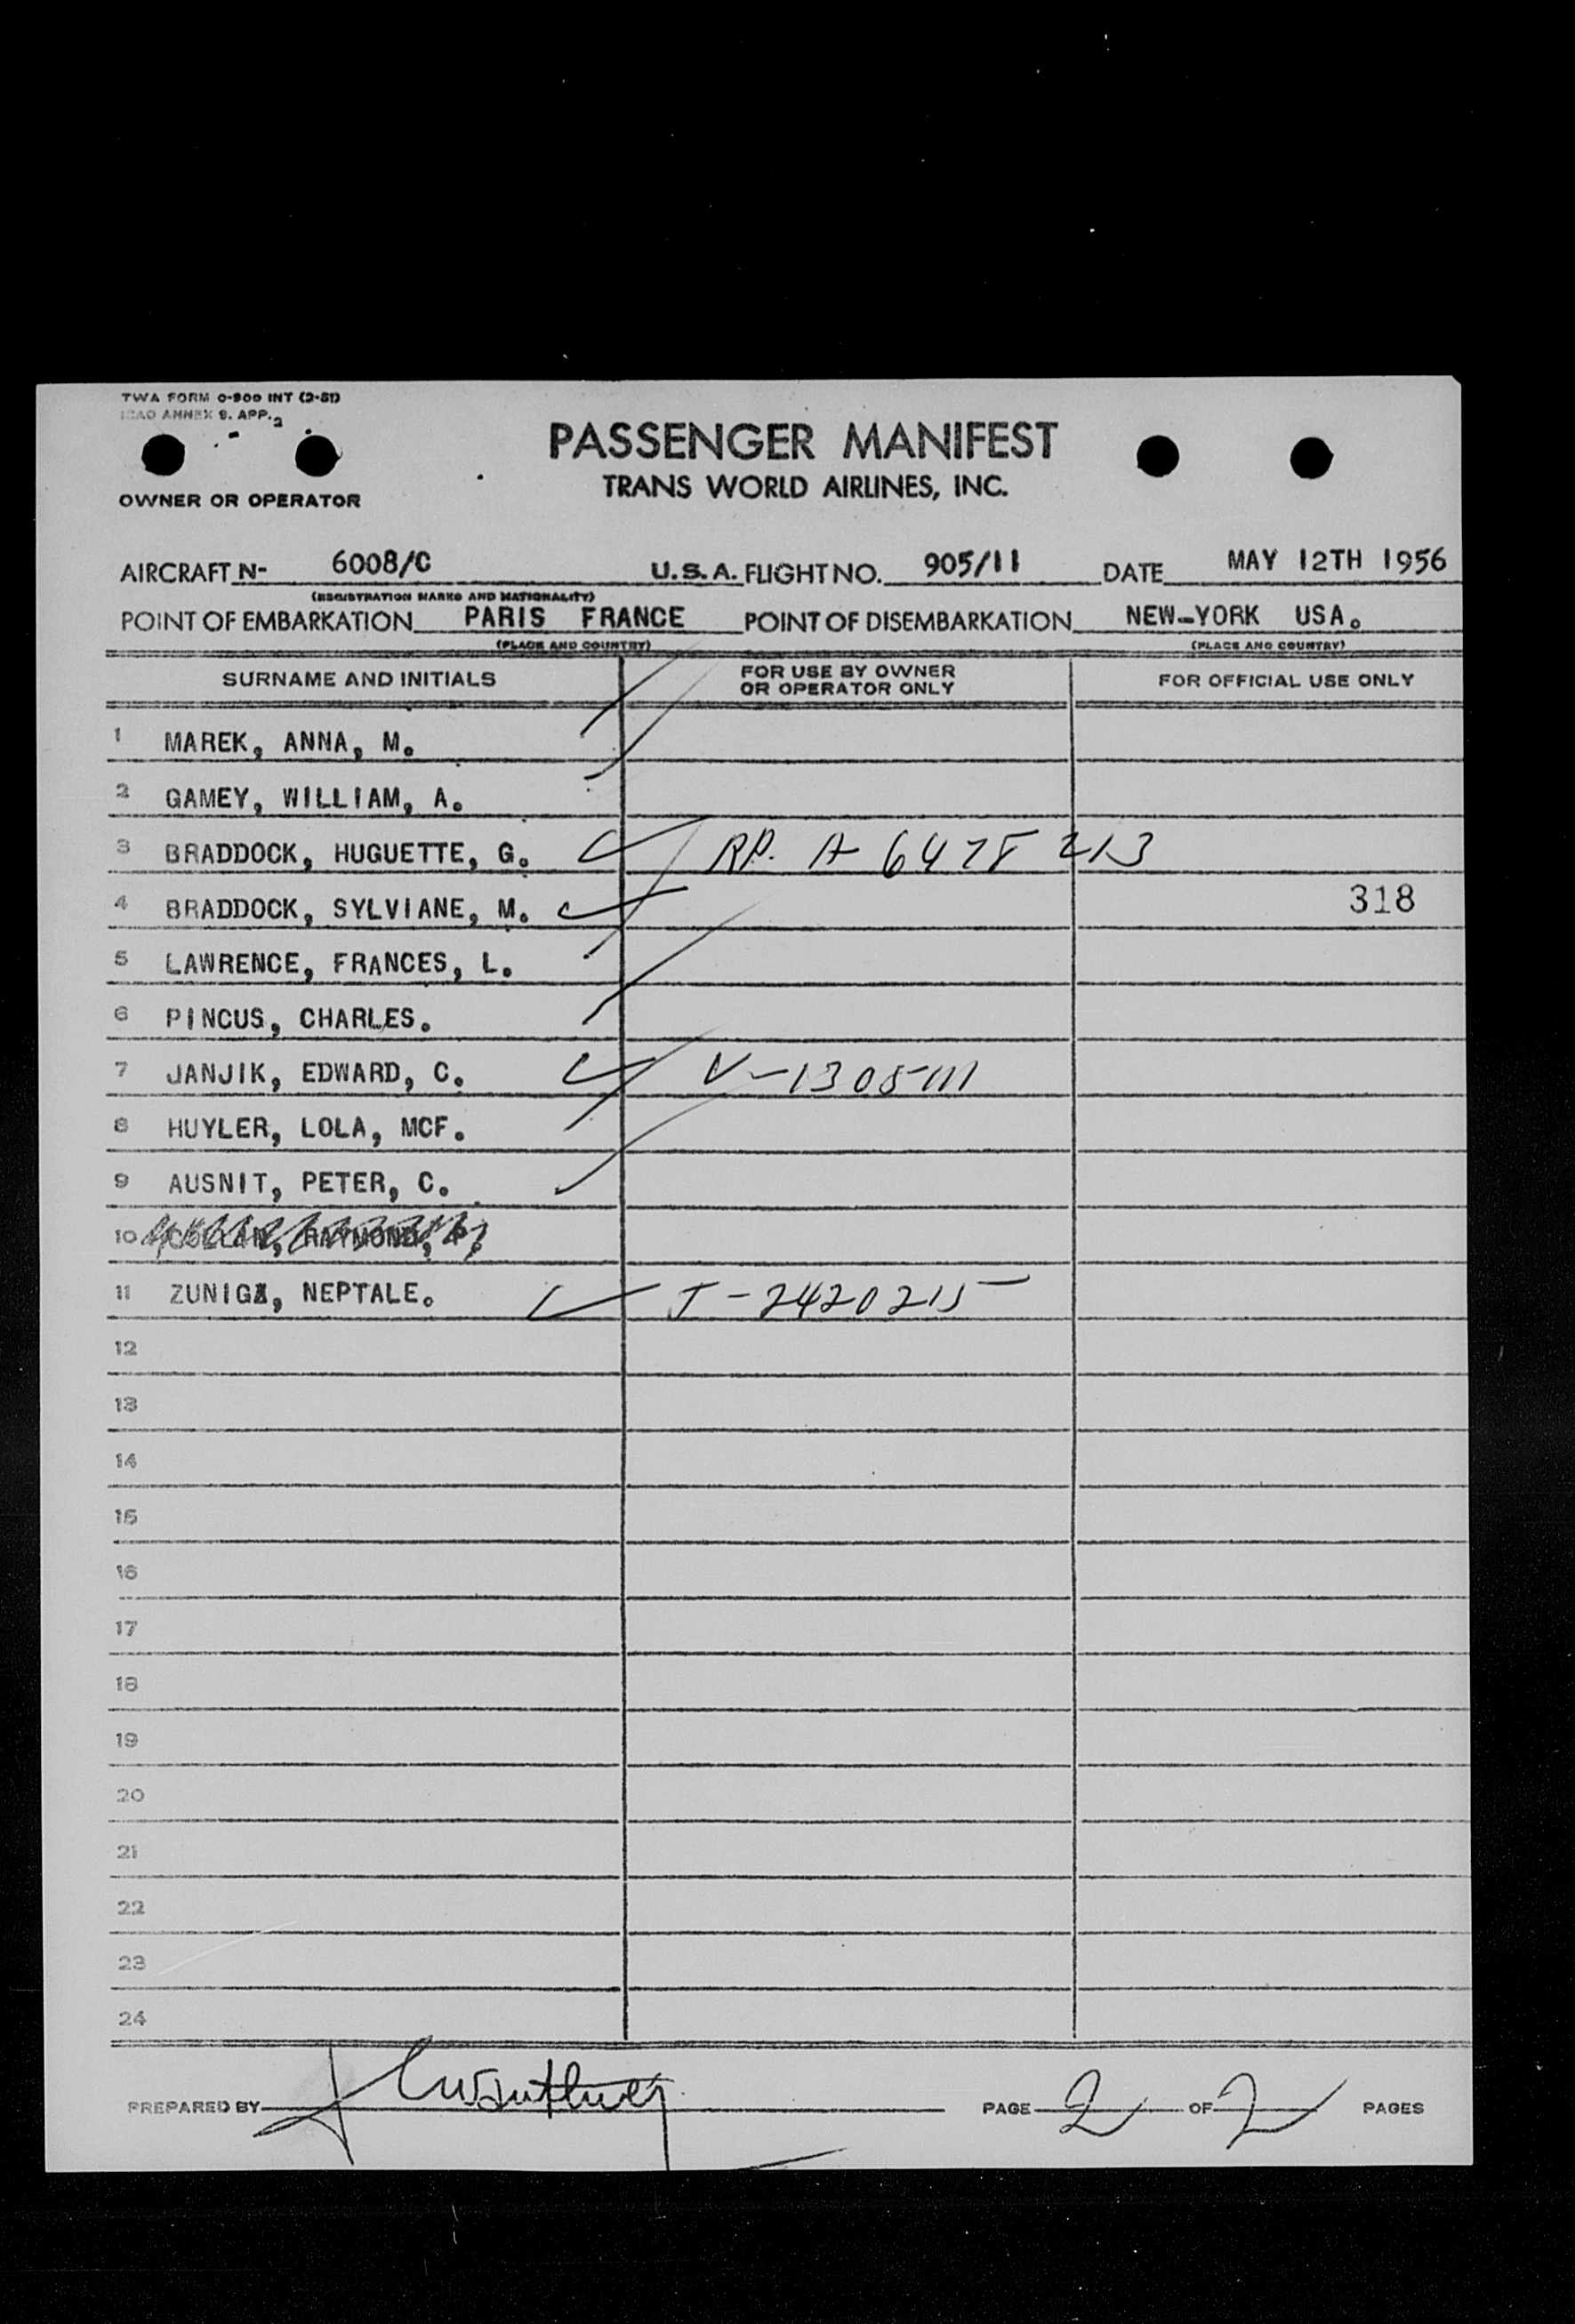 TWA FORM O-900 INT (2-51)
ICAO ANNEX 9. APP. 2
PASSENGER MANIFEST
TRANS WORLD AIRLINES, INC.
OWNER OR OPERATOR
AIRCRAFT N- 6008/C U.S.A. FLIGHT NO. 905/11 DATE MAY 12TH 1956
(REGISTRATION MARKS AND NATIONALITY)
POINT OF EMBARKATION PARIS FRANCE POINT OF DISEMBARKATION NEW-YORK USA.
(PLACE AND COUNTRY) (PLACE AND COUNTRY)
SURNAME AND INITIALS FOR USE BY OWNER OR OPERATOR ONLY FOR OFFICIAL USE ONLY
1 MAREK, ANNA, M.
2 GAMEY, WILLIAM, A.
3 BRADDOCK, HUGUETTE, G. RP. A 6478 213
4 BRADDOCK, SYLVIANE, M. 318
5 LAWRENCE, FRANCES, L.
6 PINCUS, CHARLES.
7 JANJIK, EDWARD, C. V-1305111
8 HUYLER, LOLA, MCF.
9 AUSNIT, PETER, C.
10
11 ZUNIGA, NEPTALE. T-2420215
12
13
14
15
16
17
18
19
20
21
22
23
24
PREPARED BY PAGE 2 OF 2 PAGES